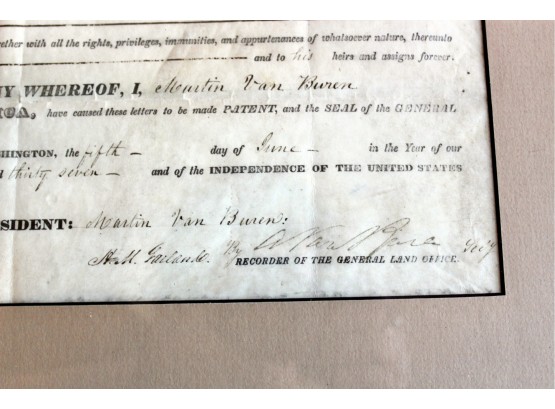 ether with all the rights, privileges, immunities, and appurtenances of whatsoever nature, thereunto
and to his heirs and assigns forever.
NY WHEREOF, I, Martin Van Buren
ICA, have caused these letters to be made PATENT, and the SEAL of the GENERAL
SHINGTON, the fifth day of June in the Year of our
d thirty seven and of the INDEPENDENCE OF THE UNITED STATES
SIDENT: Martin Van Buren:
H. M. Garland. By A Van Buren Secy
RECORDER OF THE GENERAL LAND OFFICE.